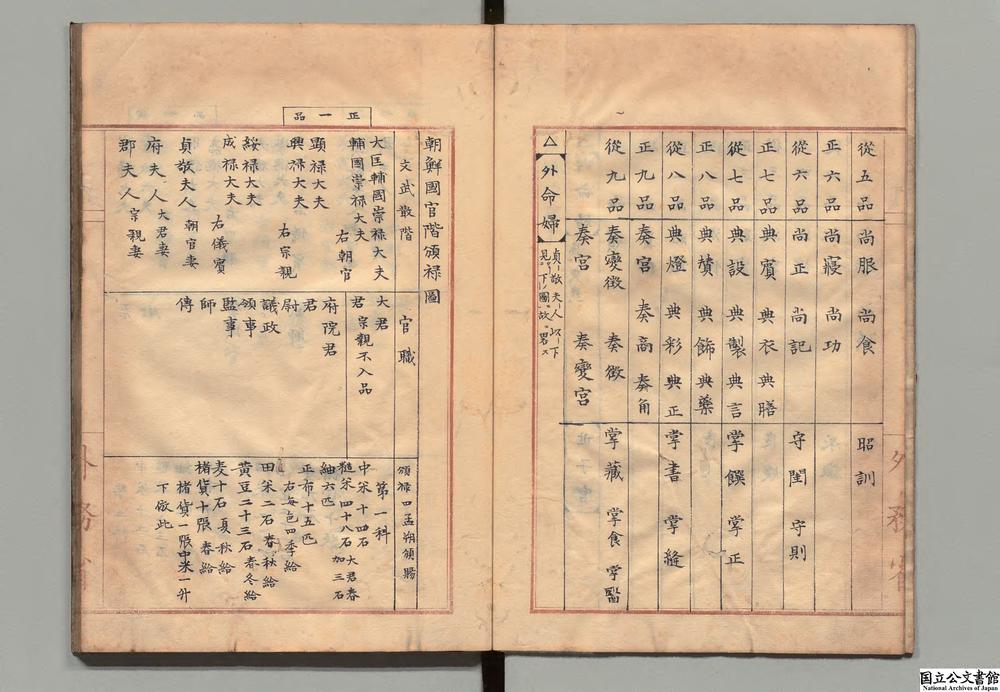 從五品 尚服 尚食 昭訓
正六品 尚寢 尚功
從六品 尚正 尚記 守閨 守則
正七品 典賓 典衣 典膳
從七品 典設 典製 典言 掌饌 掌正
正八品 典贊 典飾 典藥
從八品 典燈 典彩 典正 掌書 掌縫
正九品 奏宮 奏商 奏角
從九品 奏變徵 奏徵 掌藏 掌食 掌醫
奏宮 奏變宮
△【外命婦】貞敬夫人以下
見下圖故畧ス
朝鮮國官階頒祿圖
文武散階 官職 頒禄四孟朔頒賜
正一品
大匡輔國崇禄大夫
輔國崇禄大夫 右朝官
顯禄大夫
興禄大夫 右宗親
綏禄大夫
成禄大夫 右儀賓
貞敬夫人 朝官妻
府夫人 大君妻
郡夫人 宗親妻
大君
君 宗親不入品
府院君
君
尉
議政
領事
監事
師
傅
第一科
中米十四石
糙米四十八石 大君春加三石
紬六匹
正布十五匹
右每色四季給
田米二石春秋給
黄豆二十三石春冬給
麦十石夏秋給
楮貨十張春給
楮貨一張中米一升
下倣此
外務省
国立公文書館
National Archives of Japan